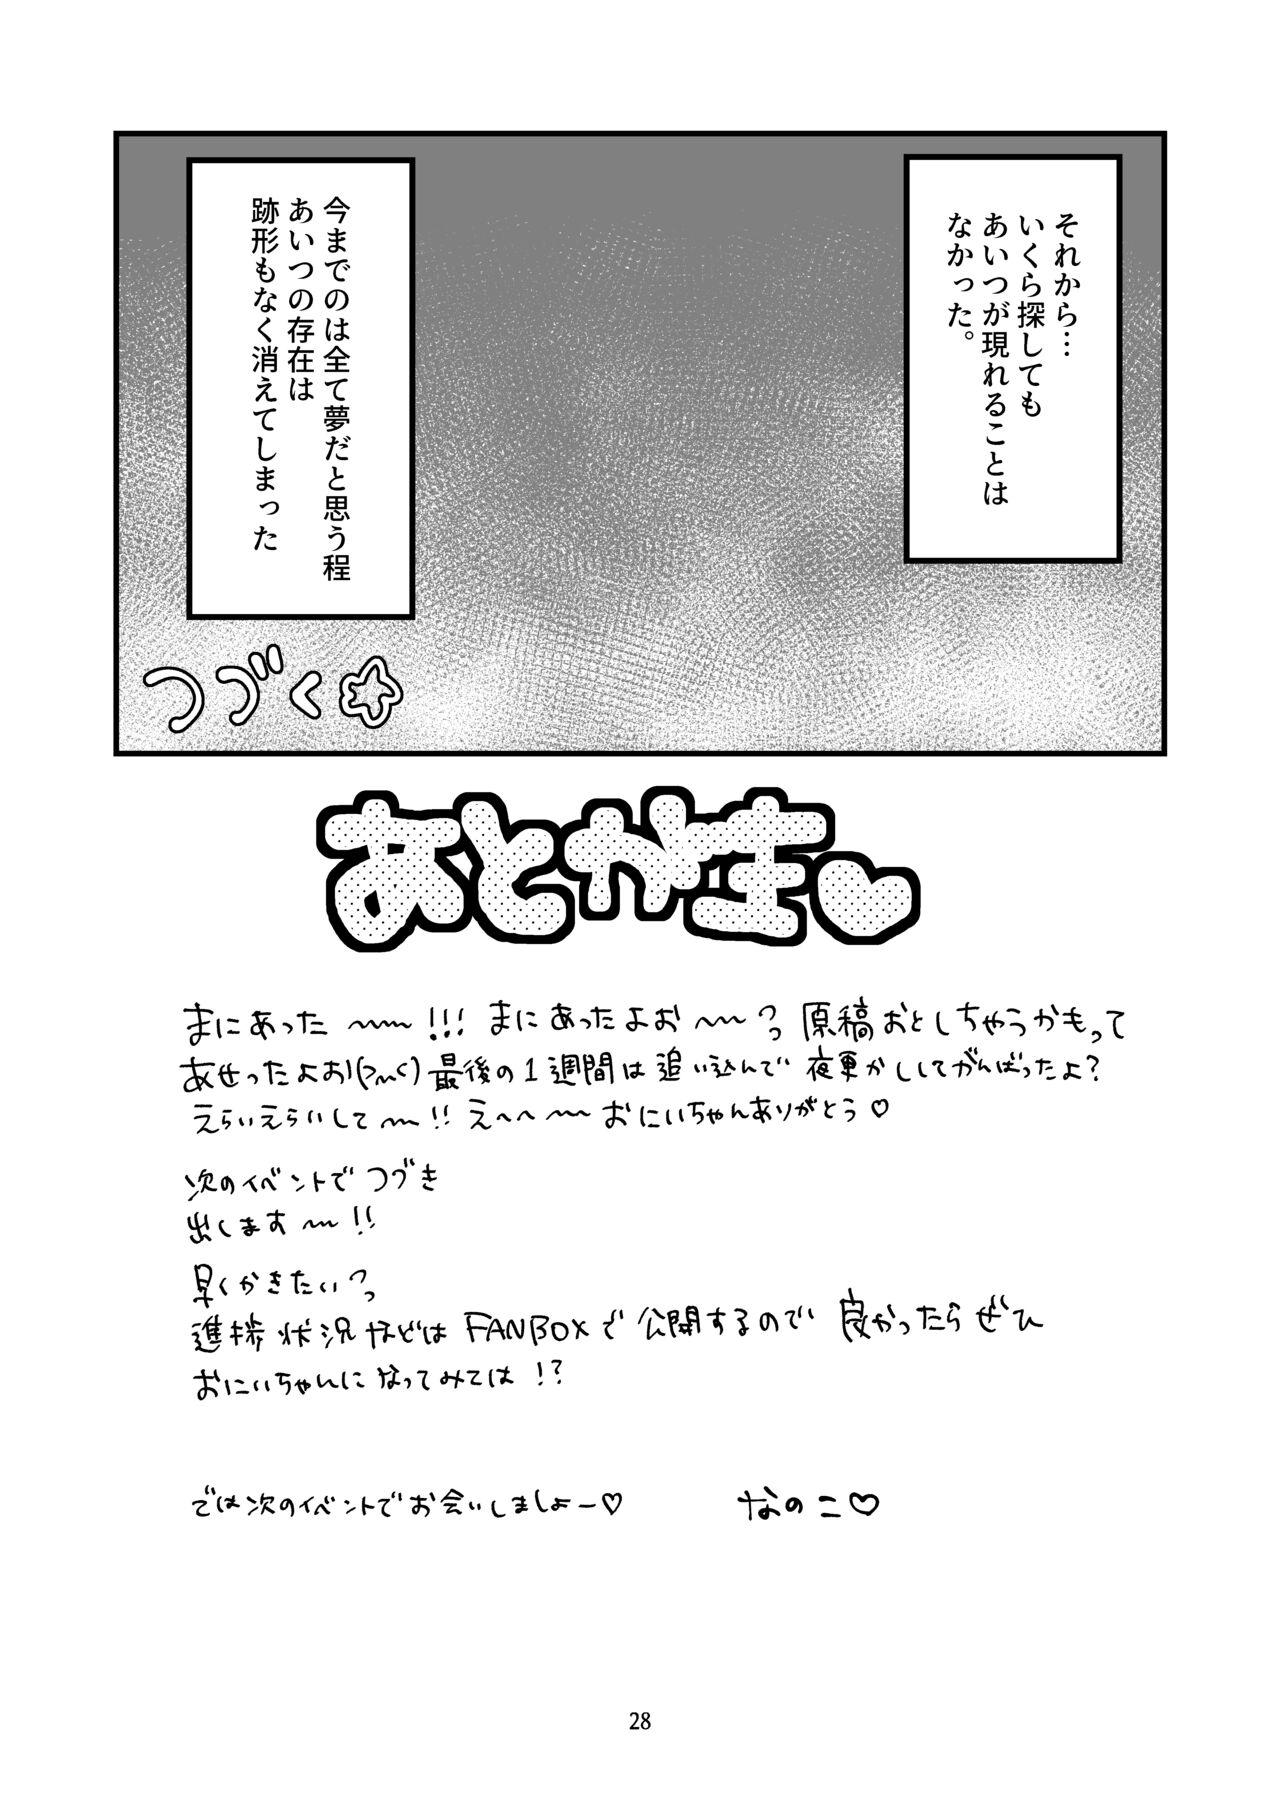 それから…
いくら探しても
あいつが現れることは
なかった。
今までのは全て夢だと思う程
あいつの存在は
跡形もなく消えてしまった
つづく☆
あとがき♥
まにあった〜〜!!! まにあったよお〜〜っっ 原稿おとしちゃうかもって
あせったよお!(>m<) 最後の1週間は追い込んで 夜更かししてがんばったよ?
えらいえらいして〜〜!! えへへ〜〜おにいちゃんありがとう♡
次のイベントでつづき
出します〜〜!!
早くかきたいっっ
進捗状況などはFANBOXで公開するので 良かったらぜひ
おにいちゃんになってみては!?
では次のイベントでお会いしましょー♡
なのこ♡
28